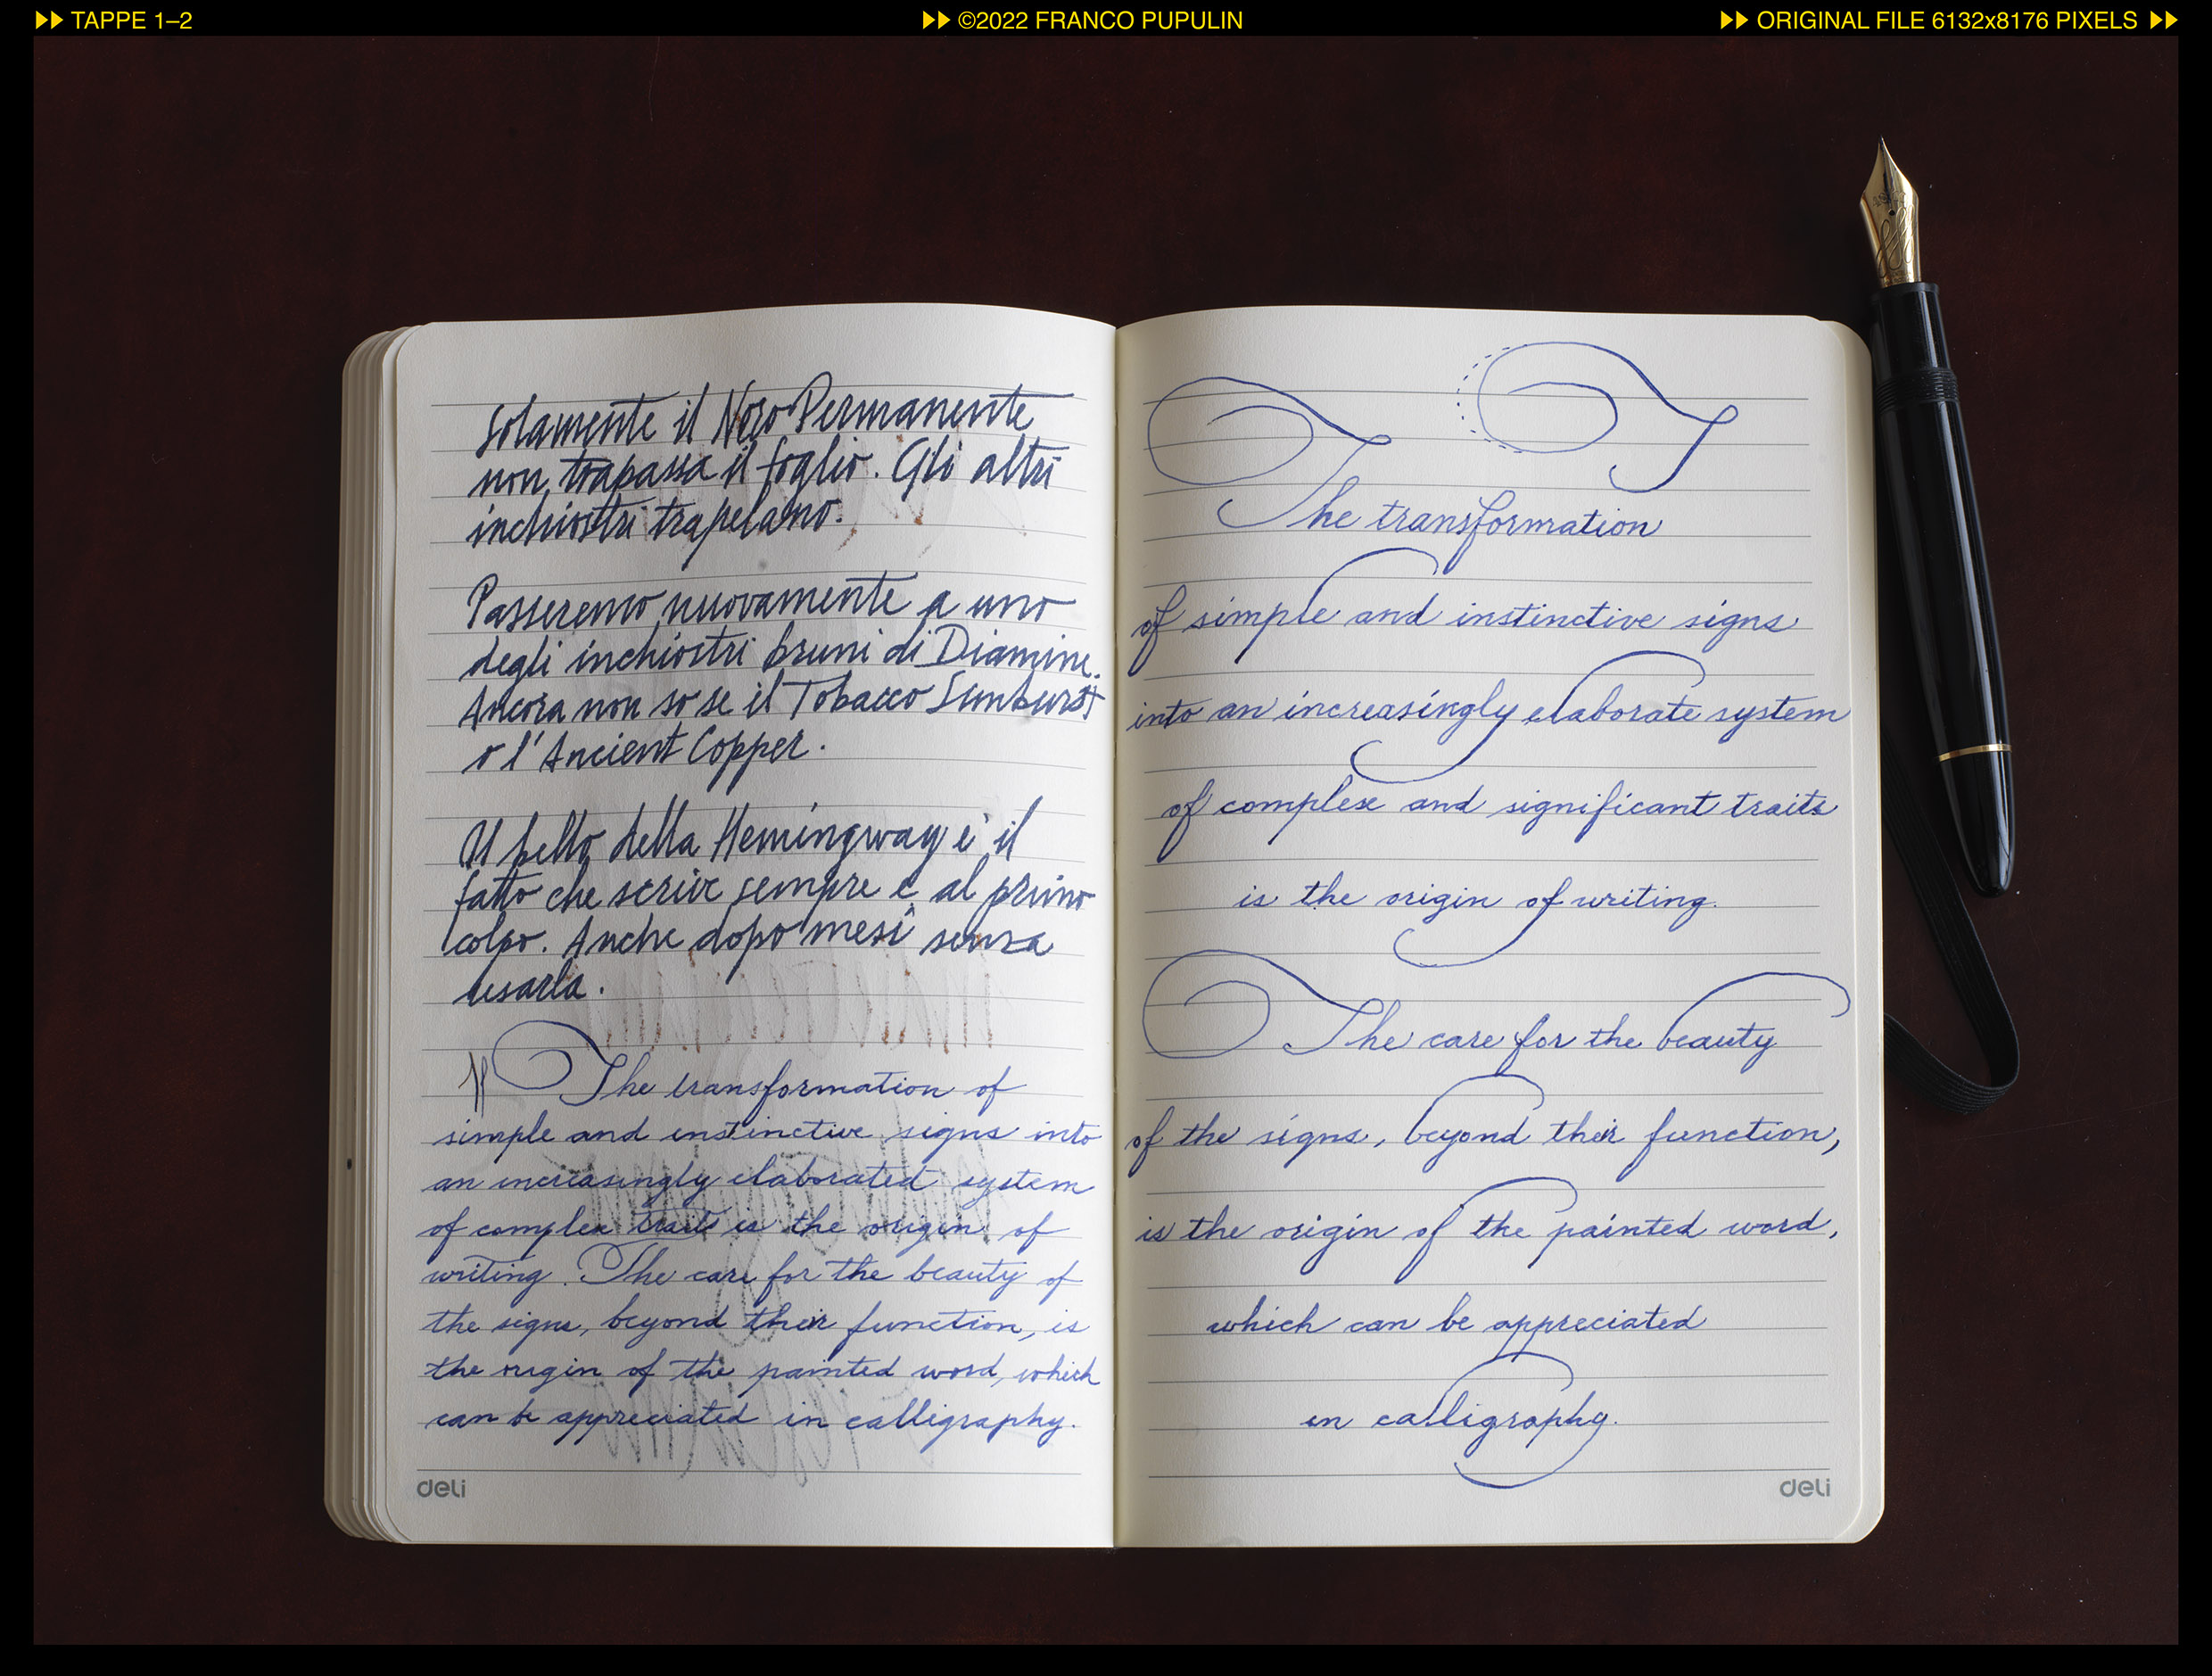 TAPPE 1–2
©2022 FRANCO PUPULIN
ORIGINAL FILE 6132x8176 PIXELS
Solamente il Nero Permanente
non trapassa il foglio. Gli altri
inchiostri trapelano.
Passeremo nuovamente a uno
degli inchiostri bruni di Diamine.
Ancora non so se il Tobacco Sunburst
o l'Ancient Copper.
Il bello della Hemingway è il
fatto che scrive sempre e al primo
colpo. Anche dopo mesi senza
usarla.
The transformation of
simple and instinctive signs into
an increasingly elaborated system
of complex traits is the origin of
writing. The care for the beauty of
the signs, beyond their function, is
the origin of the painted word, which
can be appreciated in calligraphy.
deli
T T
The transformation
of simple and instinctive signs
into an increasingly elaborate system
of complex and significant traits
is the origin of writing.
The care for the beauty
of the signs, beyond their function,
is the origin of the painted word,
which can be appreciated
in calligraphy.
deli